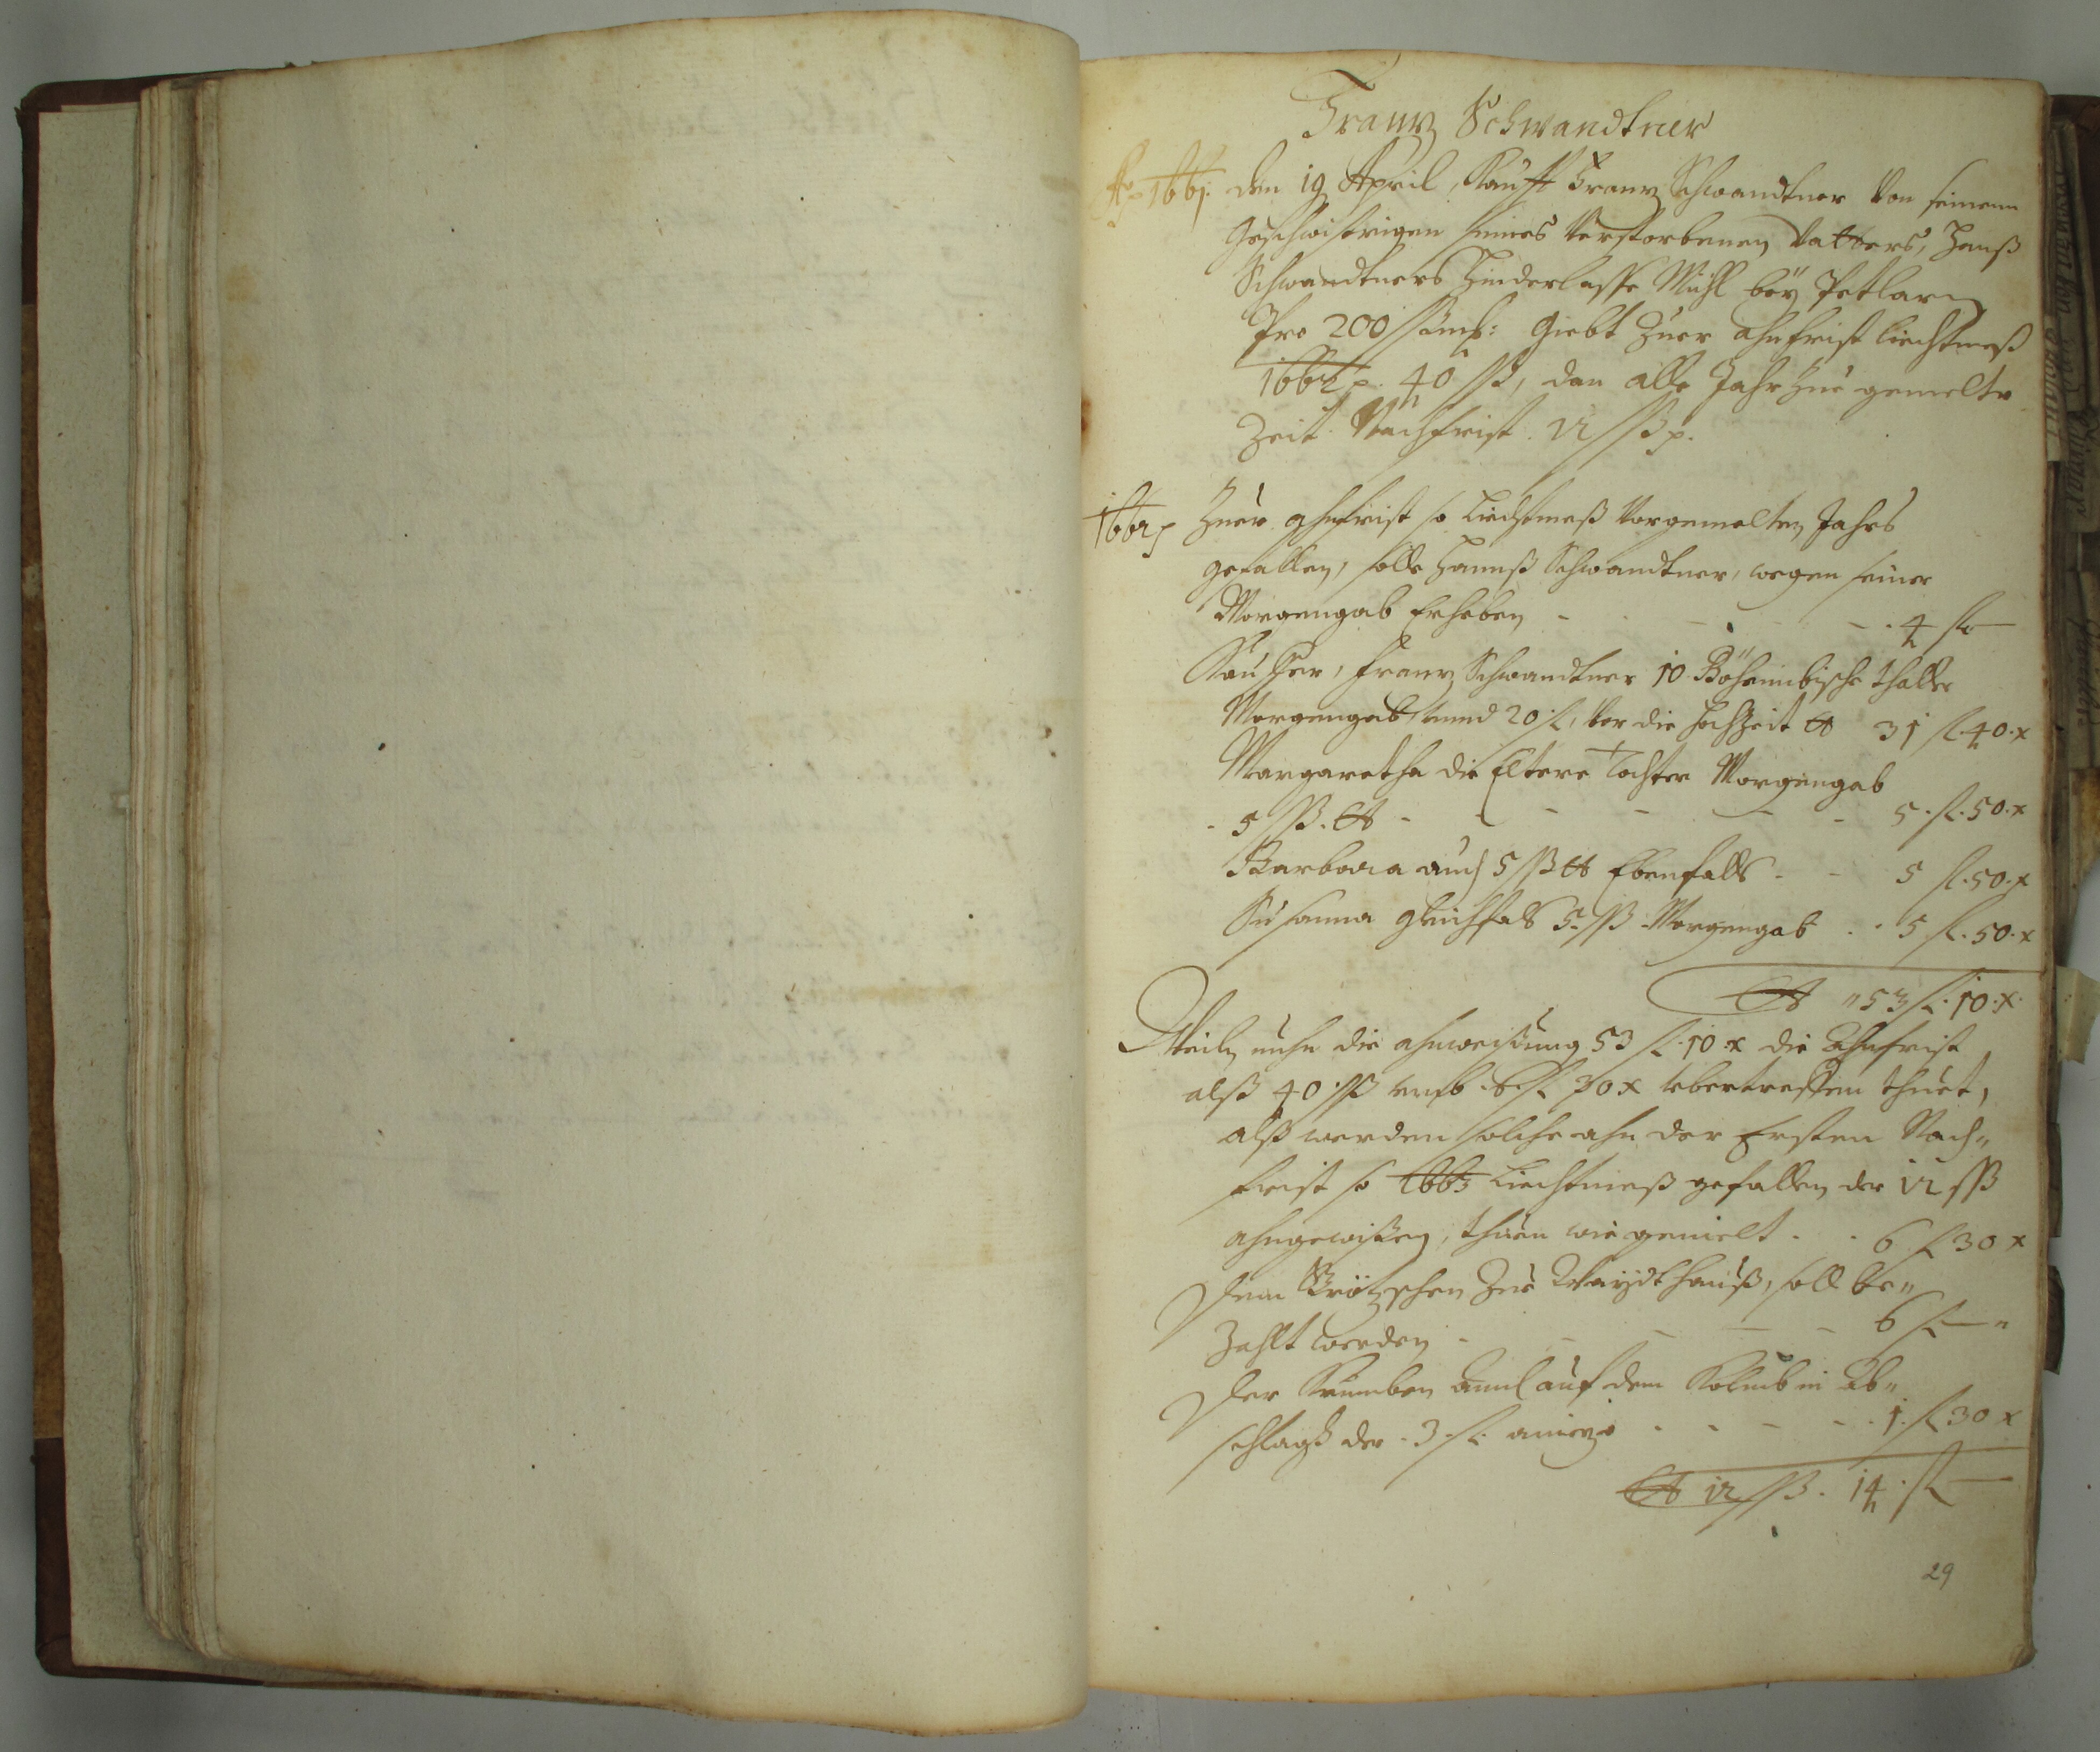 Franz Schwandtner
Ao 1661. den 19 April, Kaufft Franz Schwandtner von seinenn
Geschwistrigen seines verstorbenen Vatters, Hanß
Schwandtners hinderlasse Mühl bey Petlarn
Pro 200 ßch: Giebt Zuer ahnfrist Liechtmeß
1662 p. 40 ß, dan alle Jahr Zue gemelter
Zeit Nachfrist. 12 ß p.
1662 p Zuer ahnfrist so Liechtmeß vorgemelten Jahrs
gefallen, solle Hannß Schwandtner, wegen seiner
Morgengab Erheben - - - 4 fl —
Kauffer, Franz Schwandtner 10 Böheimbische thaller
Morgengab, unnd 20 fl, vor die hochzeit tt 31 fl. 40. x
Margaretha die Eltere Tochter Morgengab
- 5 ß. tt - - - - - 5. fl. 50. x
Barbara auch 5 ß tt Ebenfalls - - 5 fl. 50. x
Susanna gleichfals 5. ß Morgengab . . 5 fl. 50. x
tt " 53 fl. 10. x.
Weiln nuhn die ahnweisung 53 fl. 10. x die ahnfrist
alß 40 ß umb 6 fl. 30 x ubertreffen thuet,
alß werden solche ahn der Ersten Nach„
frist so 1663 Liechtmeß gefallen der 12 ß
ahngewisen, thuen wie gemelt . . 6 fl 30 x
Dem zue Waydthauß, soll be„
zahlt werden - - - - - 6 fl — "
Der auf dem in Ab„
schlagß der . 3 fl. - - - - . 1. fl 30 x
tt 12 ß. 14. fl —
29